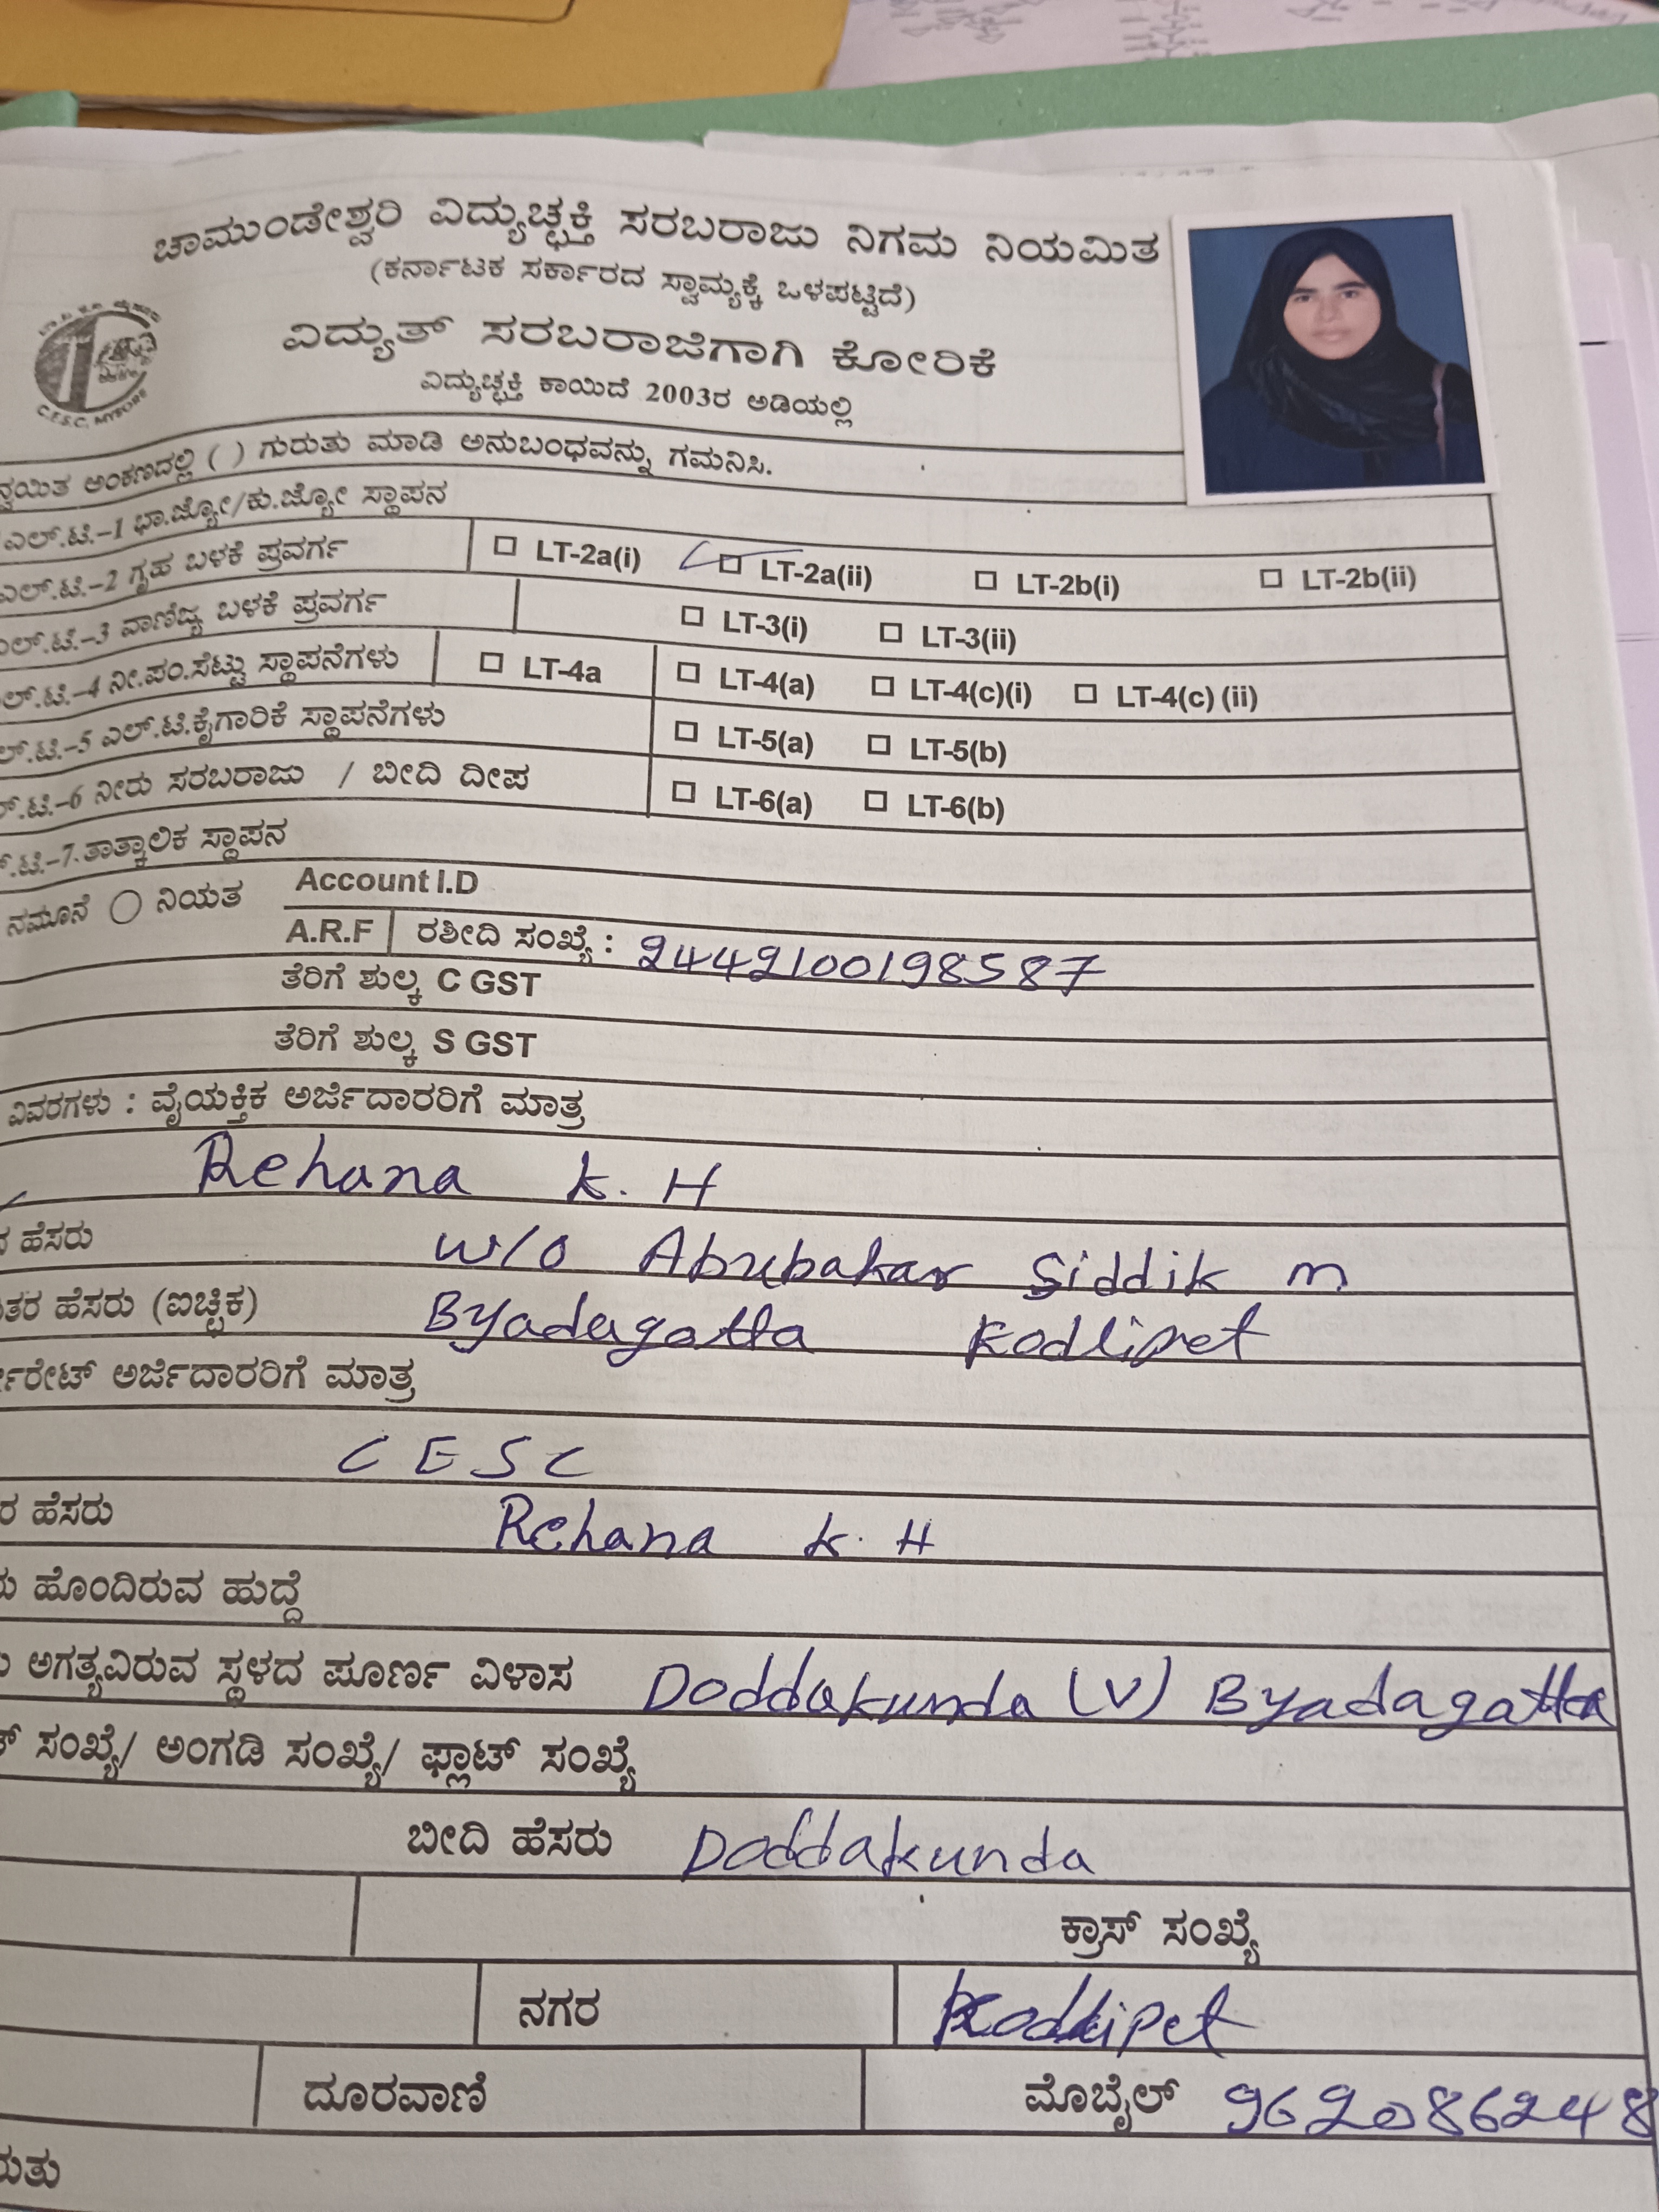 ಚಾಮುಂಡೇಶ್ವರಿ ವಿದ್ಯುಚ್ಛಕ್ತಿ ಸರಬರಾಜು ನಿಗಮ ನಿಯಮಿತ
(ಕರ್ನಾಟಕ ಸರ್ಕಾರದ ಸ್ವಾಮ್ಯಕ್ಕೆ ಒಳಪಟ್ಟಿದೆ)
ವಿದ್ಯುತ್ ಸರಬರಾಜಿಗಾಗಿ ಕೋರಿಕೆ
ವಿದ್ಯುಚ್ಛಕ್ತಿ ಕಾಯಿದೆ 2003ರ ಅಡಿಯಲ್ಲಿ
C.E.S.C, MYSORE
ಅಂಕಣದಲ್ಲಿ ( ) ಗುರುತು ಮಾಡಿ ಅನುಬಂಧವನ್ನು ಗಮನಿಸಿ.
ಎಲ್.ಟಿ.-1 ಭಾ.ಜ್ಯೋ/ಕು.ಜ್ಯೋ ಸ್ಥಾಪನ
ಎಲ್.ಟಿ.-2 ಗೃಹ ಬಳಕೆ ಪ್ರವರ್ಗ □ LT-2a(i) □ LT-2a(ii) □ LT-2b(i) □ LT-2b(ii)
ಎಲ್.ಟಿ.-3 ವಾಣಿಜ್ಯ ಬಳಕೆ ಪ್ರವರ್ಗ □ LT-3(i) □ LT-3(ii)
ಲ್.ಟಿ.-4 ನೀ.ಪಂ.ಸೆಟ್ಟು ಸ್ಥಾಪನೆಗಳು □ LT-4a □ LT-4(a) □ LT-4(c)(i) □ LT-4(c) (ii)
ಲ್.ಟಿ.-5 ಎಲ್.ಟಿ.ಕೈಗಾರಿಕೆ ಸ್ಥಾಪನೆಗಳು □ LT-5(a) □ LT-5(b)
ಲ್.ಟಿ.-6 ನೀರು ಸರಬರಾಜು / ಬೀದಿ ದೀಪ □ LT-6(a) □ LT-6(b)
.ಟಿ.-7.ತಾತ್ಕಾಲಿಕ ಸ್ಥಾಪನ
ನಮೂನೆ ○ ನಿಯತ Account I.D
A.R.F ರಶೀದಿ ಸಂಖ್ಯೆ : 2442100198587
ತೆರಿಗೆ ಶುಲ್ಕ C GST
ತೆರಿಗೆ ಶುಲ್ಕ S GST
ವಿವರಗಳು : ವೈಯಕ್ತಿಕ ಅರ್ಜಿದಾರರಿಗೆ ಮಾತ್ರ
Rehana K. H
ಹೆಸರು w/o Abubakar Siddik m
ತರ ಹೆಸರು (ಐಚ್ಚಿಕ) Byadagotta Kodlipet
ರೇಟ್ ಅರ್ಜಿದಾರರಿಗೆ ಮಾತ್ರ
CESC
ರ ಹೆಸರು Rehana K. H
ಹೊಂದಿರುವ ಹುದ್ದೆ
ಅಗತ್ಯವಿರುವ ಸ್ಥಳದ ಪೂರ್ಣ ವಿಳಾಸ Doddakunda (V) Byadagotta
ಸಂಖ್ಯೆ/ ಅಂಗಡಿ ಸಂಖ್ಯೆ/ ಫ್ಲಾಟ್ ಸಂಖ್ಯೆ
ಬೀದಿ ಹೆಸರು Doddakunda
ಕ್ರಾಸ್ ಸಂಖ್ಯೆ
ನಗರ Kodlipet
ದೂರವಾಣಿ ಮೊಬೈಲ್ 9620862248